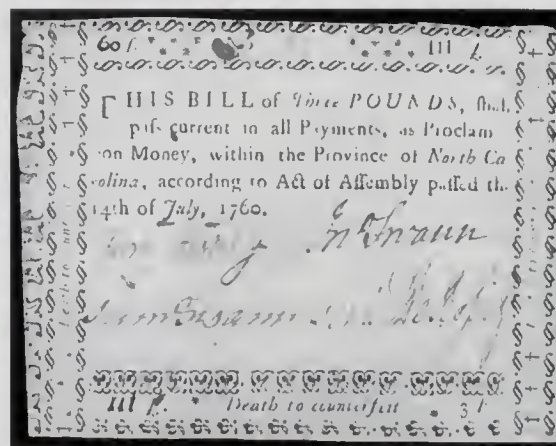 60 ſ. III £.
THIS BILL of Three POUNDS, ſhal
paſs current in all Payments, as Proclam
ion Money, within the Province of North Ca
rolina, according to Act of Aſſembly paſſed th
14th of July, 1760.
Jn Swann
Sam Swann
III £. Death to counterfeit 3 £